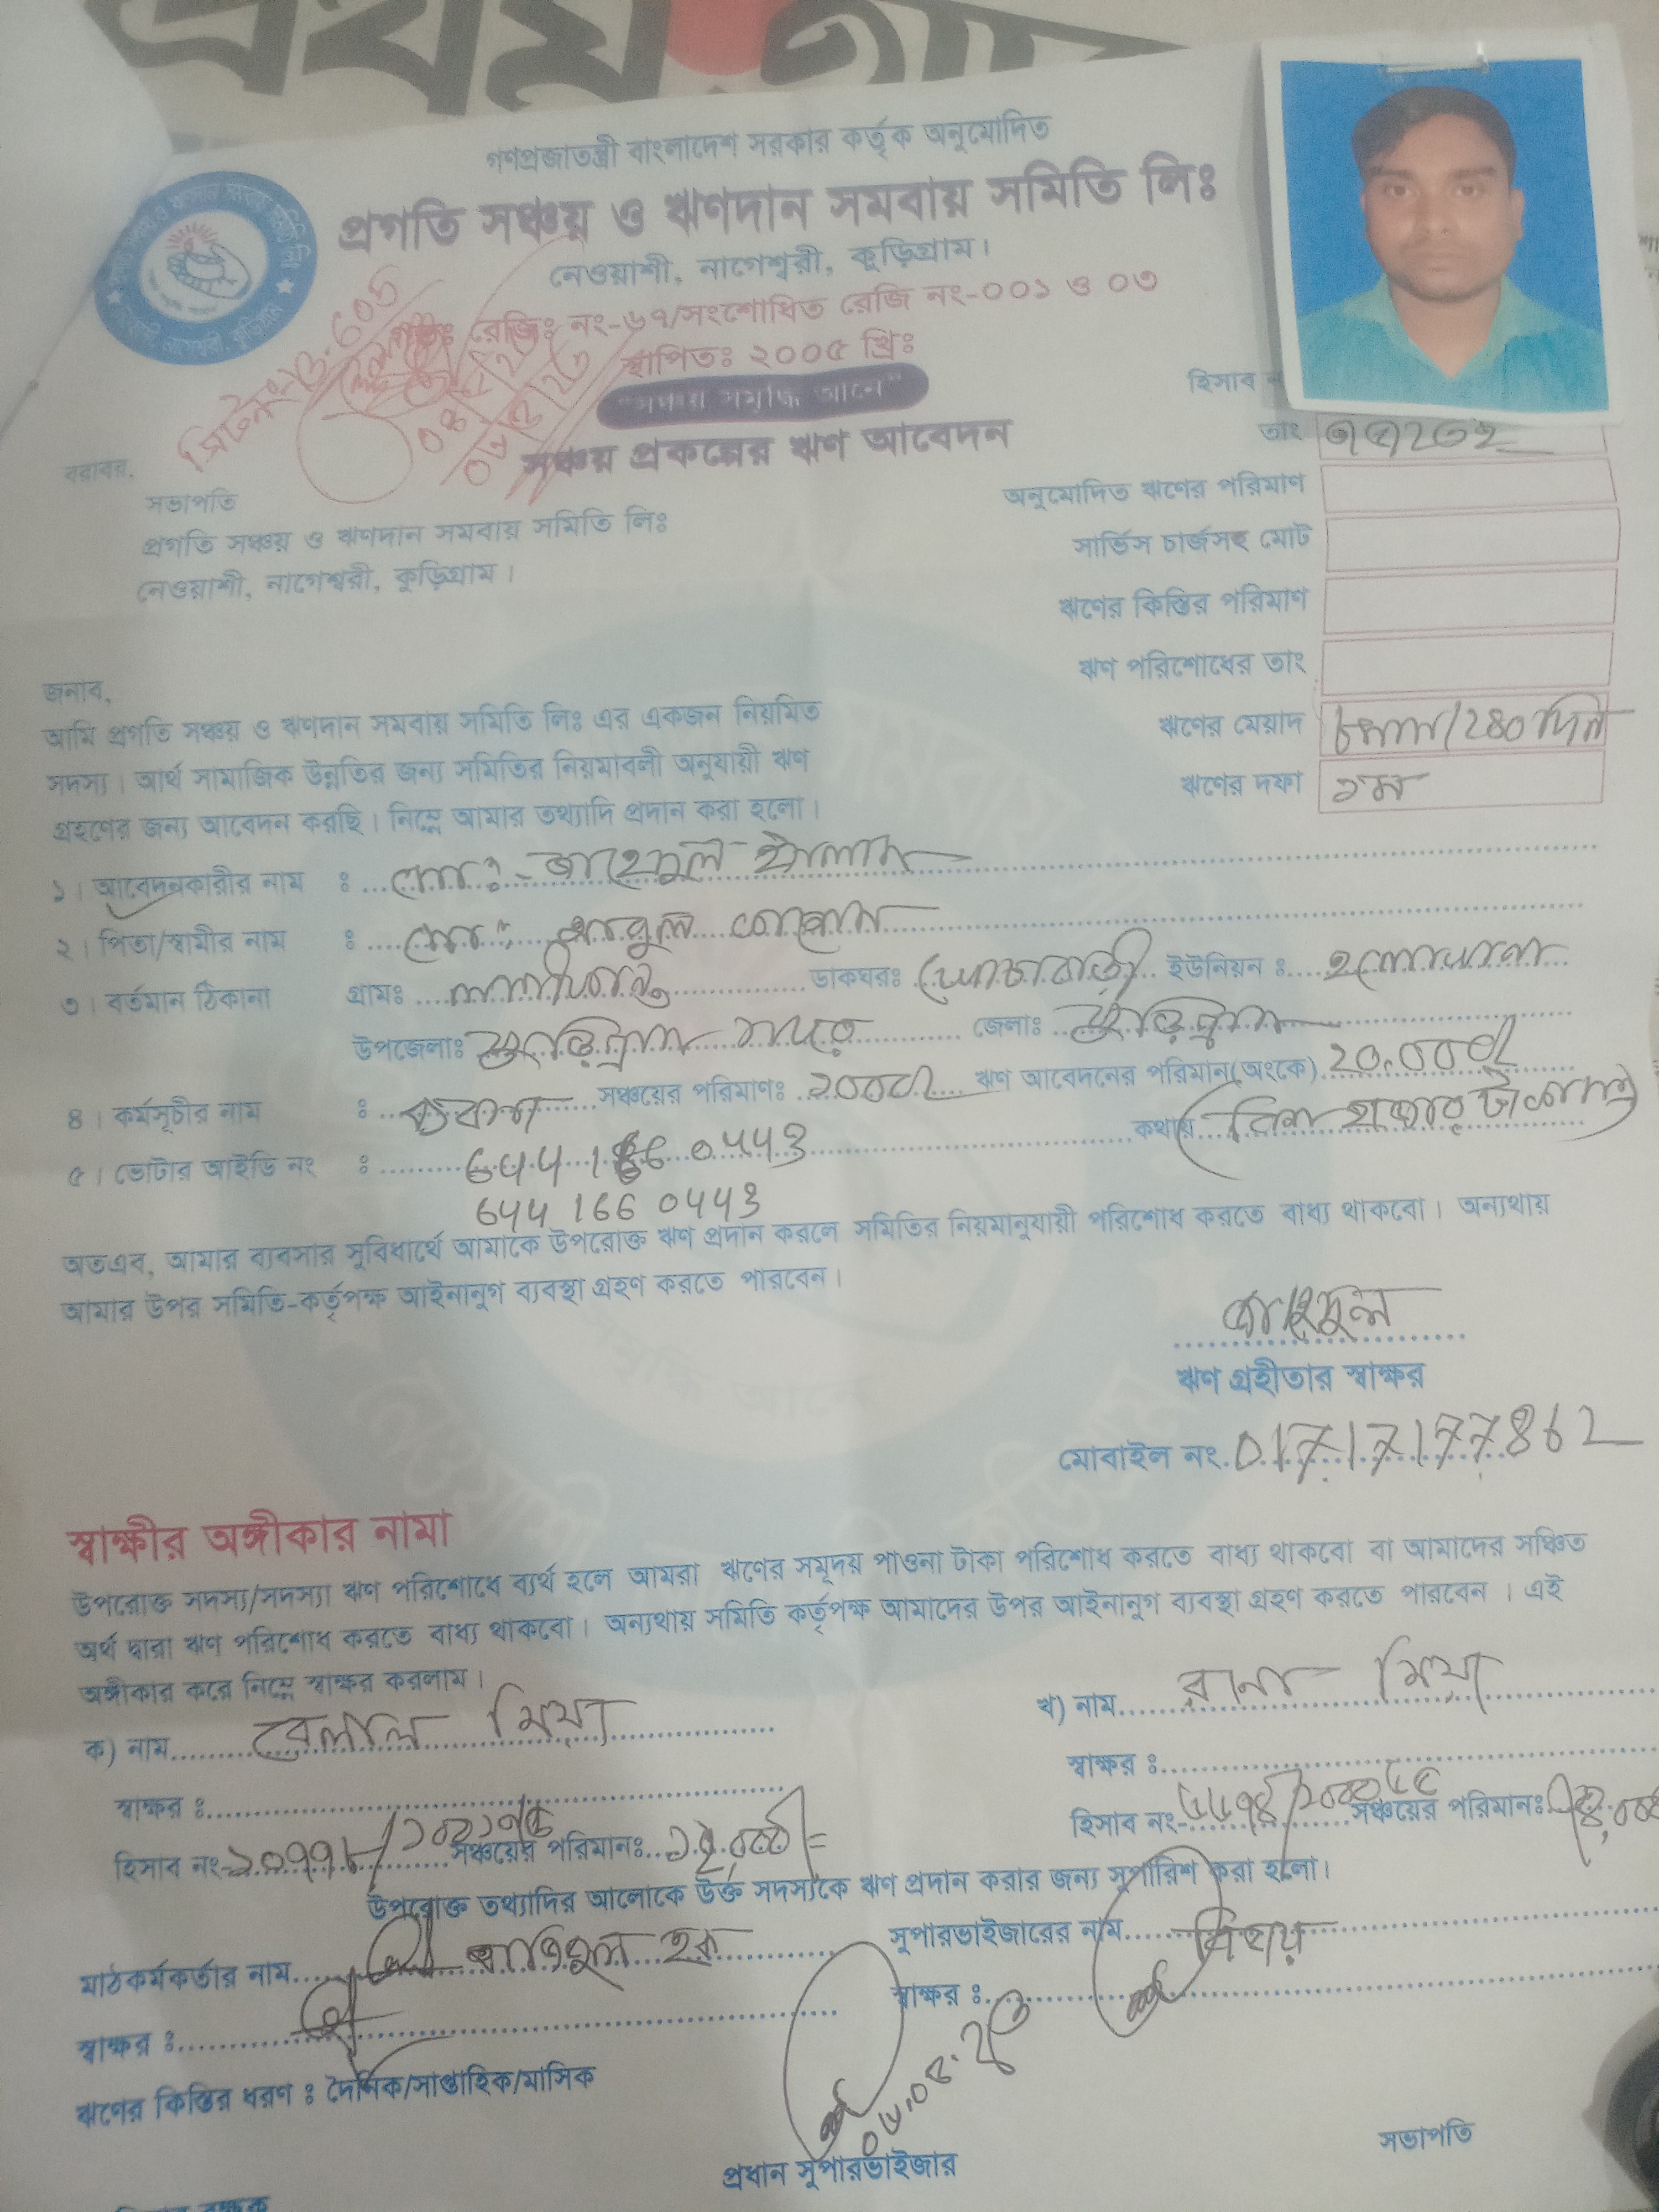 প্রথম আলো
গণপ্রজাতন্ত্রী বাংলাদেশ সরকার কর্তৃক অনুমোদিত
প্রগতি সঞ্চয় ও ঋণদান সমবায় সমিতি লিঃ
নেওয়াশী, নাগেশ্বরী, কুড়িগ্রাম।
রেজিঃ নং-৬৭/সংশোধিত রেজি নং-০০১ ও ০৩
স্থাপিতঃ ২০০৫ খ্রিঃ
"সঞ্চয় সমৃদ্ধি আনে"
হিসাব
সঞ্চয় প্রকল্পের ঋণ আবেদন
তাং
বরাবর,
সভাপতি
প্রগতি সঞ্চয় ও ঋণদান সমবায় সমিতি লিঃ
নেওয়াশী, নাগেশ্বরী, কুড়িগ্রাম।
অনুমোদিত ঋণের পরিমাণ
সার্ভিস চার্জসহ মোট
ঋণের কিস্তির পরিমাণ
ঋণ পরিশোধের তাং
ঋণের মেয়াদ ৮মাস/২৪০ দিন
ঋণের দফা ১ম
জনাব,
আমি প্রগতি সঞ্চয় ও ঋণদান সমবায় সমিতি লিঃ এর একজন নিয়মিত
সদস্য। আর্থ সামাজিক উন্নতির জন্য সমিতির নিয়মাবলী অনুযায়ী ঋণ
গ্রহণের জন্য আবেদন করছি। নিম্নে আমার তথ্যাদি প্রদান করা হলো।
১। আবেদনকারীর নাম : মোঃ- জাহেদুল ইসলাম
২। পিতা/স্বামীর নাম : মোঃ আবুল হোসেন
৩। বর্তমান ঠিকানা গ্রামঃ ডাকঘরঃ ইউনিয়ন : হলোখানা
উপজেলাঃ কুড়িগ্রাম সদর জেলাঃ কুড়িগ্রাম
৪। কর্মসূচীর নাম : সঞ্চয়ের পরিমাণঃ ২০০০/ ঋণ আবেদনের পরিমান(অংকে) ২০,০০০/
কথায় (বিশ হাজার টাকা মাত্র)
৫। ভোটার আইডি নং : 644 166 0443
644 166 0443
অতএব, আমার ব্যবসার সুবিধার্থে আমাকে উপরোক্ত ঋণ প্রদান করলে সমিতির নিয়মানুযায়ী পরিশোধ করতে বাধ্য থাকবো। অন্যথায়
আমার উপর সমিতি-কর্তৃপক্ষ আইনানুগ ব্যবস্থা গ্রহণ করতে পারবেন।
জাহেদুল
ঋণ গ্রহীতার স্বাক্ষর
মোবাইল নং 01717177862
স্বাক্ষীর অঙ্গীকার নামা
উপরোক্ত সদস্য/সদস্যা ঋণ পরিশোধে ব্যর্থ হলে আমরা ঋণের সমূদয় পাওনা টাকা পরিশোধ করতে বাধ্য থাকবো বা আমাদের সঞ্চিত
অর্থ দ্বারা ঋণ পরিশোধ করতে বাধ্য থাকবো। অন্যথায় সমিতি কর্তৃপক্ষ আমাদের উপর আইনানুগ ব্যবস্থা গ্রহণ করতে পারবেন। এই
অঙ্গীকার করে নিম্নে স্বাক্ষর করলাম।
ক) নাম বেলাল মিয়া
খ) নাম রানা মিয়া
স্বাক্ষর :
স্বাক্ষর :
হিসাব নং- সঞ্চয়ের পরিমানঃ
হিসাব নং- সঞ্চয়ের পরিমানঃ
উপরোক্ত তথ্যাদির আলোকে উক্ত সদস্যকে ঋণ প্রদান করার জন্য সুপারিশ করা হলো।
মাঠকর্মকর্তার নাম হক
সুপারভাইজারের নাম
স্বাক্ষর :
স্বাক্ষর :
ঋণের কিস্তির ধরণ : দৈনিক/সাপ্তাহিক/মাসিক
প্রধান সুপারভাইজার
সভাপতি